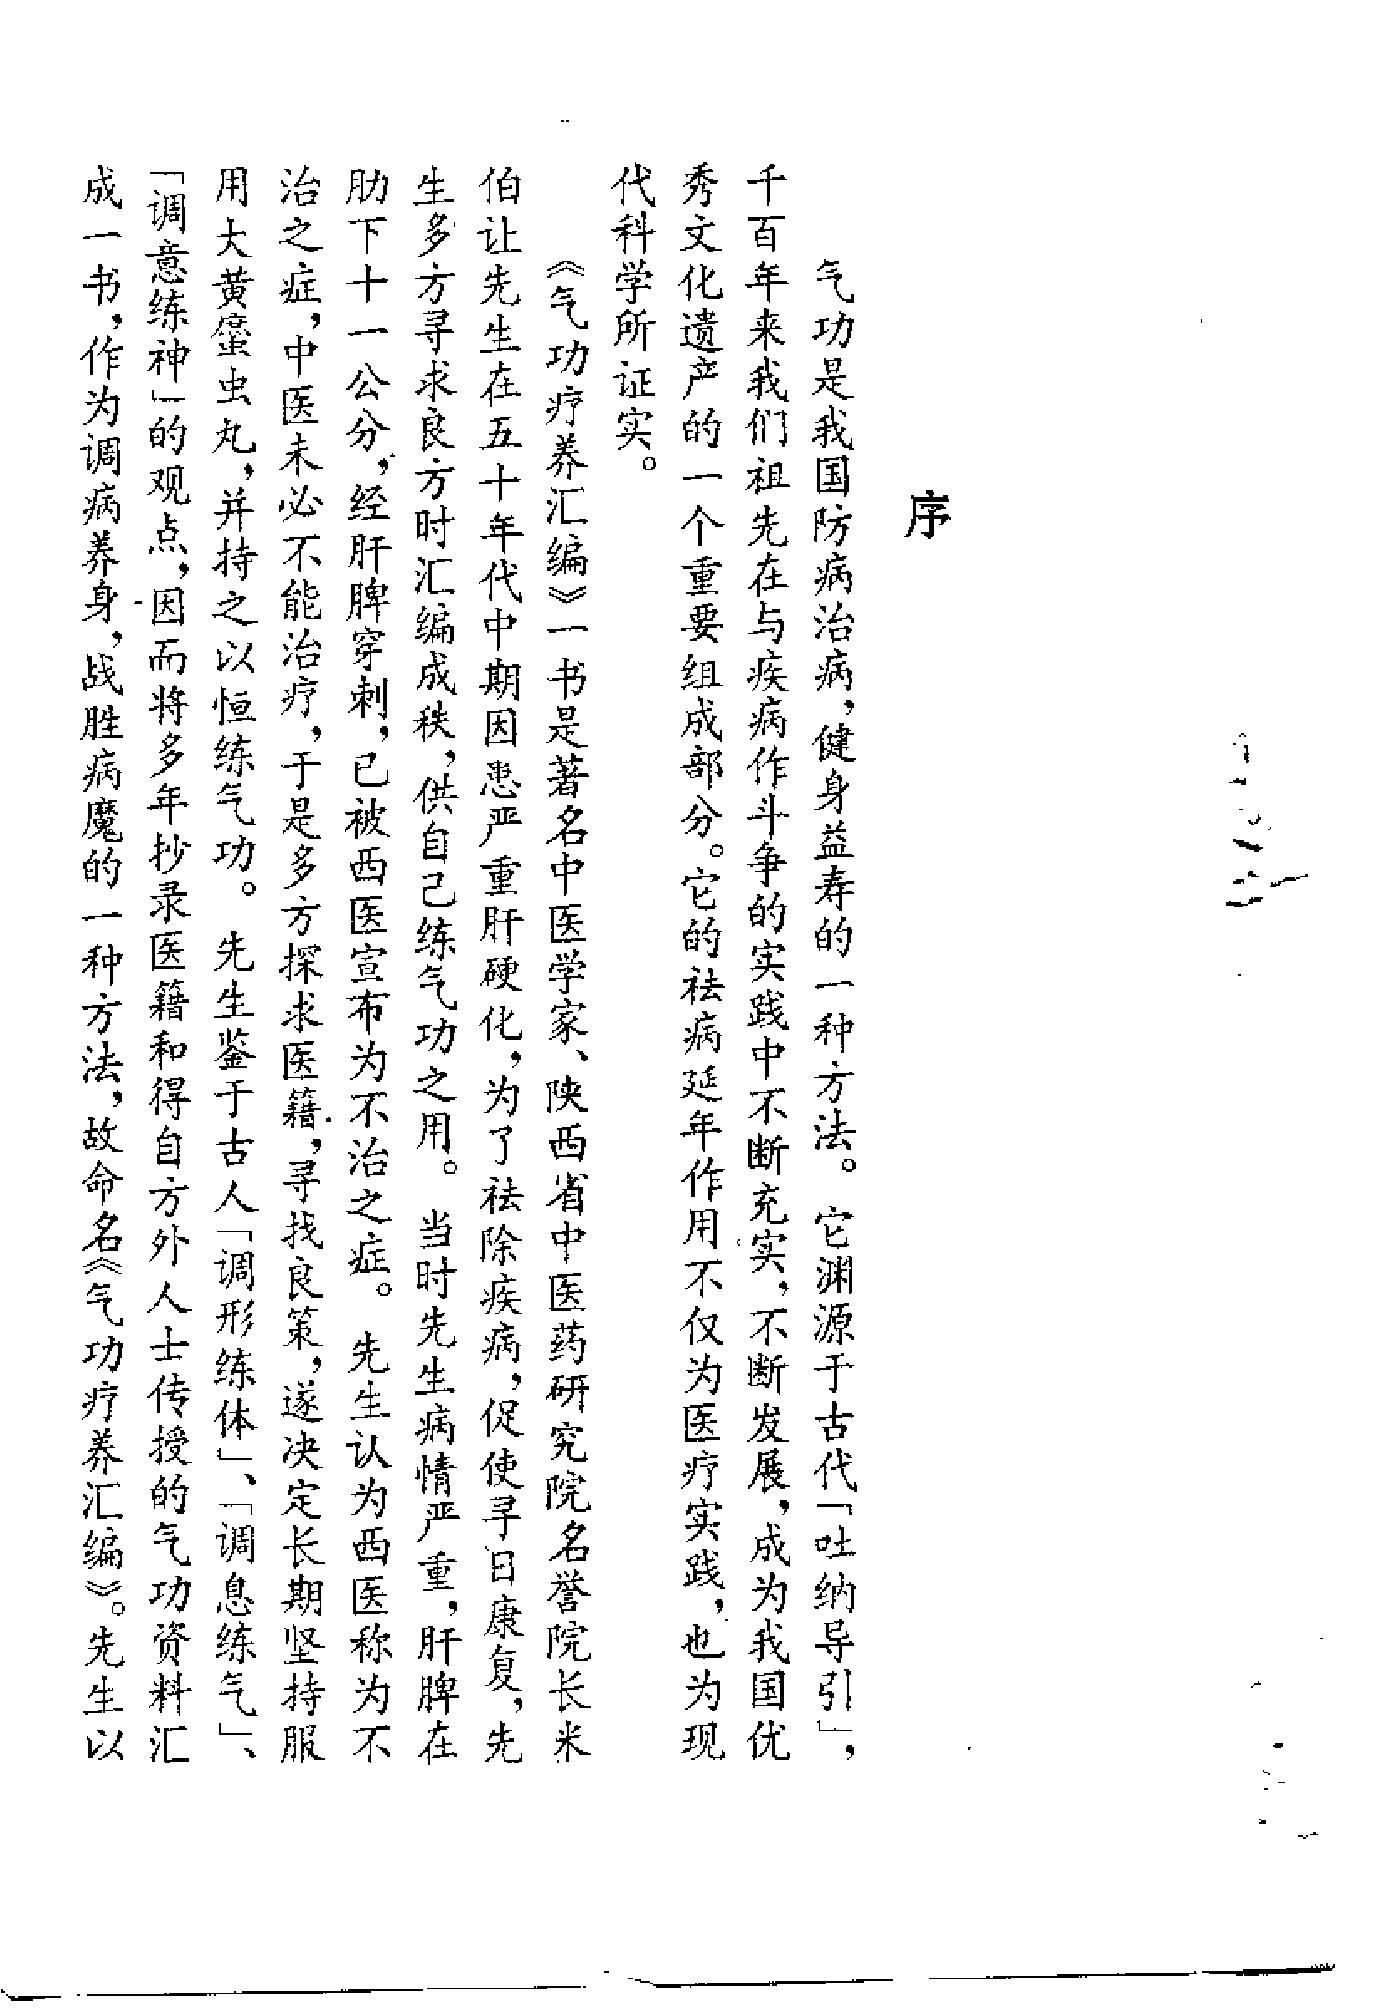 序
气功是我国防病治病，健身益寿的一种方法。它渊源于古代「吐纳导引」，
千百年来我们祖先在与疾病作斗争的实践中不断充实，不断发展，成为我国优
秀文化遗产的一个重要组成部分。它的祛病延年作用不仅为医疗实践，也为现
代科学所证实。
《气功疗养汇编》一书是著名中医学家、陕西省中医药研究院名誉院长米
伯让先生在五十年代中期因患严重肝硬化，为了祛除疾病，促使寻日康复，先
生多方寻求良方时汇编成秩，供自己练气功之用。当时先生病情严重，肝脾在
肋下十一公分，经肝脾穿刺，已被西医宣布为不治之症。先生认为西医称为不
治之症，中医未必不能治疗，于是多方探求医籍，寻找良策，遂决定长期坚持服
用大黄䗪虫丸，并持之以恒练气功。先生鉴于古人「调形练体」、「调息练气」、
「调意练神」的观点，因而将多年抄录医籍和得自方外人士传授的气功资料汇
成一书，作为调病养身，战胜病魔的一种方法，故命名《气功疗养汇编》。先生以